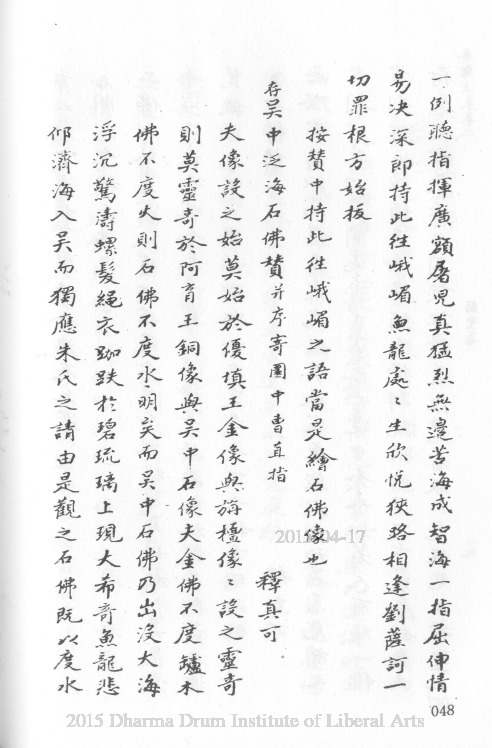 一例聽指揮廣額屠兒真猛烈無邊苦海成智海一指屈伸情
易決深即持此往峨嵋魚龍處〻生欣悅狹路相逢劉薩訶一
切罪根方始拔
按贊中持此往峨嵋之語當是繪石佛像也
存吳中泛海石佛贊并序寄圜中曹直指 釋真可
夫像設之始莫始於優填王金像與旃檀像〻設之靈奇
則莫靈奇於阿育王銅像與吳中石像夫金佛不度鑪木
佛不度火則石佛不度水明矣而吳中石佛乃出沒大海
浮沉驚濤螺髮繩衣跏趺於碧琉璃上現大希奇魚龍悲
仰濟海入吳而獨應朱氏之請由是觀之石佛既以度水
048
2015-04-17
2015 Dharma Drum Institute of Liberal Arts